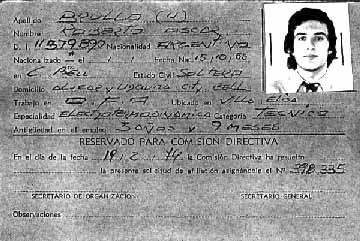 Apellido BRULLO (H)
Nombre ROBERTO OSCAR
D. I. 11579899 Nacionalidad ARGENTINO
Nacionalizado / / Fecha Na. 15.10.55
en C. BELL Estado Civil SOLTERO
Domicilio CITY BELL
Trabajo en Ubicado en VILLA ELISA
Especialidad ELECTROTERMODINÁMICA Categoría TECNICO
Antigüedad en el empleo 3 AÑOS Y 9 MESES
RESERVADO PARA COMISIÓN DIRECTIVA
En el día de la fecha 19/2/74 la Comisión Directiva ha resuelto
la presente solicitud de afiliación asignándole el Nº 398.335
SECRETARIO DE ORGANIZACION SECRETARIO GENERAL
Observaciones